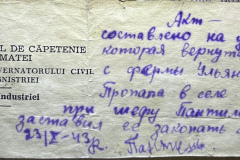 Акт-
L DE CĂPETENIE
составлено на у
MATEI
которая вернут
VERNATORULUI CIVIL
с фермы Ульян
NSNISTRIEI
Пропала в селе
Industriei
при шефу Пантил
заставил ее закопать
23/X-43г.